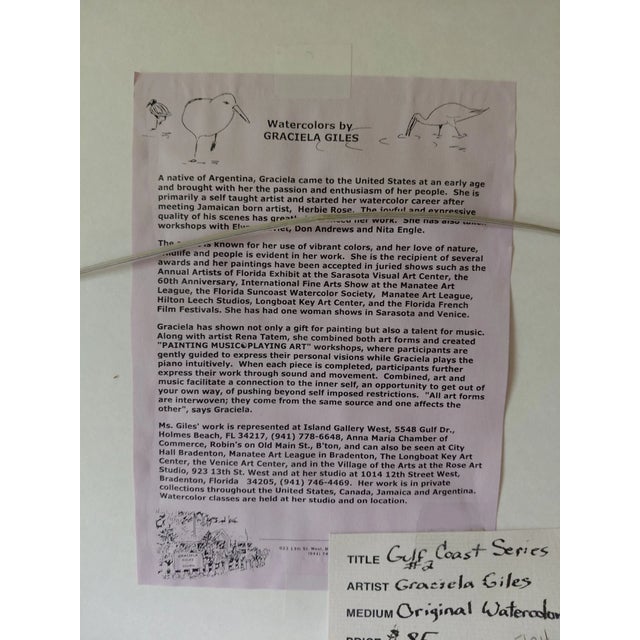 Watercolors by
GRACIELA GILES
A native of Argentina, Graciela came to the United States at an early age
and brought with her the passion and enthusiasm of her people. She is
primarily a self taught artist and started her watercolor career after
meeting Jamaican born artist, Herbie Rose. The joyful and expressive
quality of his scenes has her work. She has also taken
workshops with Don Andrews and Nita Engle.
The is known for her use of vibrant colors, and her love of nature,
wildlife and people is evident in her work. She is the recipient of several
awards and her paintings have been accepted in juried shows such as the
Annual Artists of Florida Exhibit at the Sarasota Visual Art Center, the
60th Anniversary, International Fine Arts Show at the Manatee Art
League, the Florida Suncoast Watercolor Society, Manatee Art League,
Hilton Leech Studios, Longboat Key Art Center, and the Florida French
Film Festivals. She has had one woman shows in Sarasota and Venice.
Graciela has shown not only a gift for painting but also a talent for music.
Along with artist Rena Tatem, she combined both art forms and created
"PAINTING MUSIC PLAYING ART" workshops, where participants are
gently guided to express their personal visions while Graciela plays the
piano intuitively. When each piece is completed, participants further
express their work through sound and movement. Combined, art and
music facilitate a connection to the inner self, an opportunity to get out of
your own way, of pushing beyond self imposed restrictions. "All art forms
are interwoven; they come from the same source and one affects the
other", says Graciela.
Ms. Giles' work is represented at Island Gallery West, 5548 Gulf Dr.,
Holmes Beach, FL 34217, (941) 778-6648, Anna Maria Chamber of
Commerce, Robin's on Old Main St., B'ton, and can also be seen at City
Hall Bradenton, Manatee Art League in Bradenton, The Longboat Key Art
Center, the Venice Art Center, and in the Village of the Arts at the Rose Art
Studio, 923 13th St. West and at her studio at 1014 12th Street West,
Bradenton, Florida 34205, (941) 746-4469. Her work is in private
collections throughout the United States, Canada, Jamaica and Argentina.
Watercolor classes are held at her studio and on location.
923 13th St. West,
TITLE Gulf Coast Series
#2
ARTIST Graciela Giles
MEDIUM Original Watercolor
PRICE $85